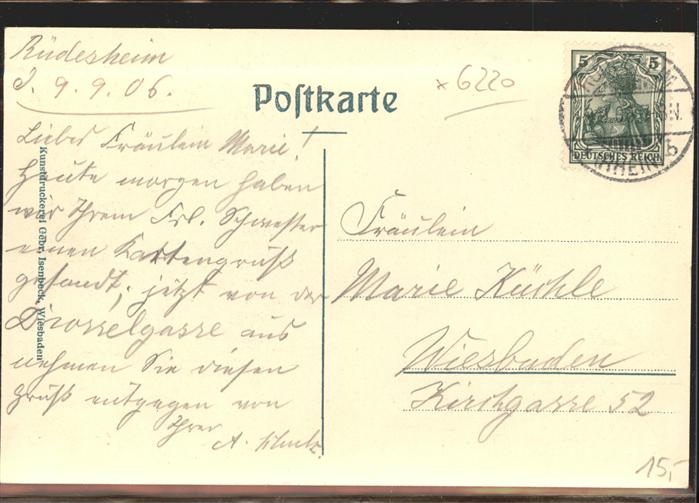 Rüdesheim
d. 9.9.06.
Postkarte
× 6220
5 5
DEUTSCHES REICH
Liebes Fräulein Marie!
Heute morgen haben
wir Ihrem Frl. Schwester
einen Kartengruß
gesandt, jetzt von der
Drosselgasse aus
nehmen Sie diesen
Gruß entgegen von
Ihrer
A.
Kunstdruckerei Gebr. Isenbeck, Wiesbaden
Fräulein
Marie Küchle
Wiesbaden
Kirchgasse 52
15,-